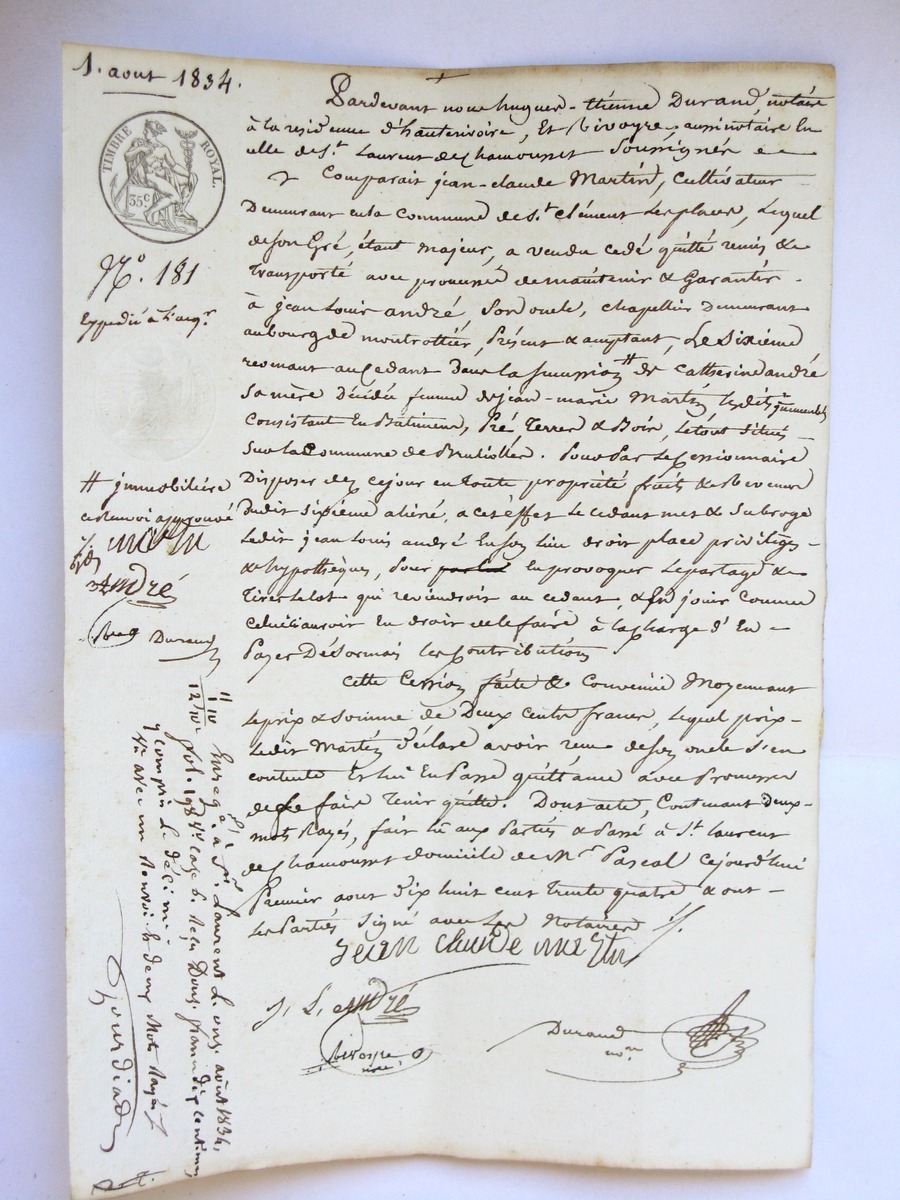 1. aout 1834.
TIMBRE ROYAL.
35c
N.o 181
Expedié à l'acqr
Pardevant nous hugues-étienne Durand, notaire
à la residence d'hauterivoire, Et Rivoyre, aussi notaire En
celle de St. Laurent de Chamousset Soussignés
Comparait jean-claude Martin, Cultivateur
Demeurant en la Commune de St. Clément les places, Lequel
de son Gré, étant majeur, a vendu cédé quitté remis &
Transporté avec promesse de maintenir & Garantir
à jean Louis andré Son oncle, chapellier Demeurant
au bourg de montrottier, Présent & acceptant, Le Sixième
revenant au Cédant Dans la Succession # de Catherine andré
Sa mère Décédée femme de jean-marie Martin, lesdits immeubles
Consistant En Bâtiments, Pré, Terres & Bois, le tout Situés
Sur la Commune de Brullioles. Pour Par le Cessionnaire
Disposer dès ce jour en toute propriété fruits & Revenus
dudit sixième aliéné, a cet éffet le cédant met & Subroge
Ledit jean Louis andré En son lieu droit place privilèges
& hypothèques, Pour En provoquer le partage &
Tirer le lot qui reviendroit au cédant, & En jouir Comme
Celui ci auroit En droit de le faire à la charge d'En
Payer Désormais les Contributions
Cette Cession faite & Convenue Moyennant
Le prix & Somme de Deux Cents francs, Lequel prix
Ledit Martin Déclare avoir reçu de son oncle s'en
contente Et lui En Passe quittance avec Promesse
de le faire Tenir quitte. Dont acte, Contenant deux
mots Rayés, fait lu aux Parties & Passé à St. Laurent
de Chamousset domicile de Mr Pascal cejourd'hui
Premier aout Dix huit cent trente quatre & ont
Les Parties Signé avec Les Notaires
jean claude martin
j. L. andré
Rivoyre
nre
Durand
nre
# immobilière
ce renvoi approuvé
martin
André
Durand
Enreg.é à St. Laurent le onze août 1834,
fol. 198 Vo case 6. Reçu Douze francs dix centimes
y compris le décime.
Vu avec un Renvoi & deux Mots Rayés